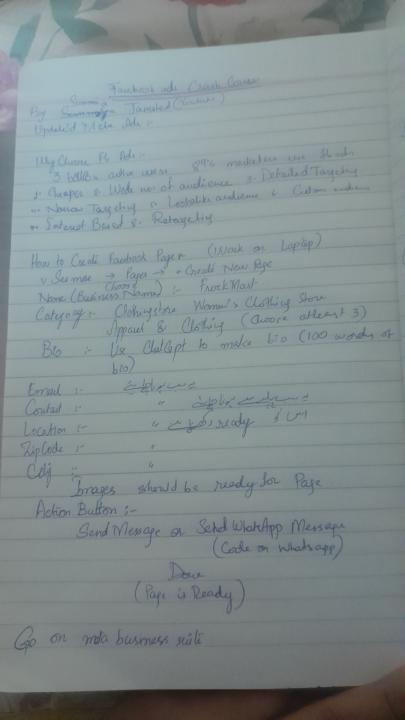 Facebook ads Crash Course
By Jamshed (Youtube)
Updated Meta Ads :-
Why Choose Fb Ads :-
3 Billion active users 89% marketers use fb ads
Cheaper 2. Wide no. of audience 3. Detailed Targeting
Narrow Targeting 5. Lookalike audience 6. Custom audience
Interest Based 8. Retargeting
How to Create Facebook Page:- (Work on Laptop)
See more → Pages → + Create New Page
Choose
Name (Business Name) :- FrockMart
Category:- Clothing store Women's Clothing Store
Apparel & Clothing (Choose atleast 3)
Bio :- Use ChatGpt to make bio (100 words of
bio)
Email :-
Contact :- "
Location :- " ready
ZipCode :- "
"
Images should be ready for Page
Action Button :-
Send Message or Send WhatsApp Message
(Code on Whatsapp)
Done
(Page is Ready)
Go on meta business suite